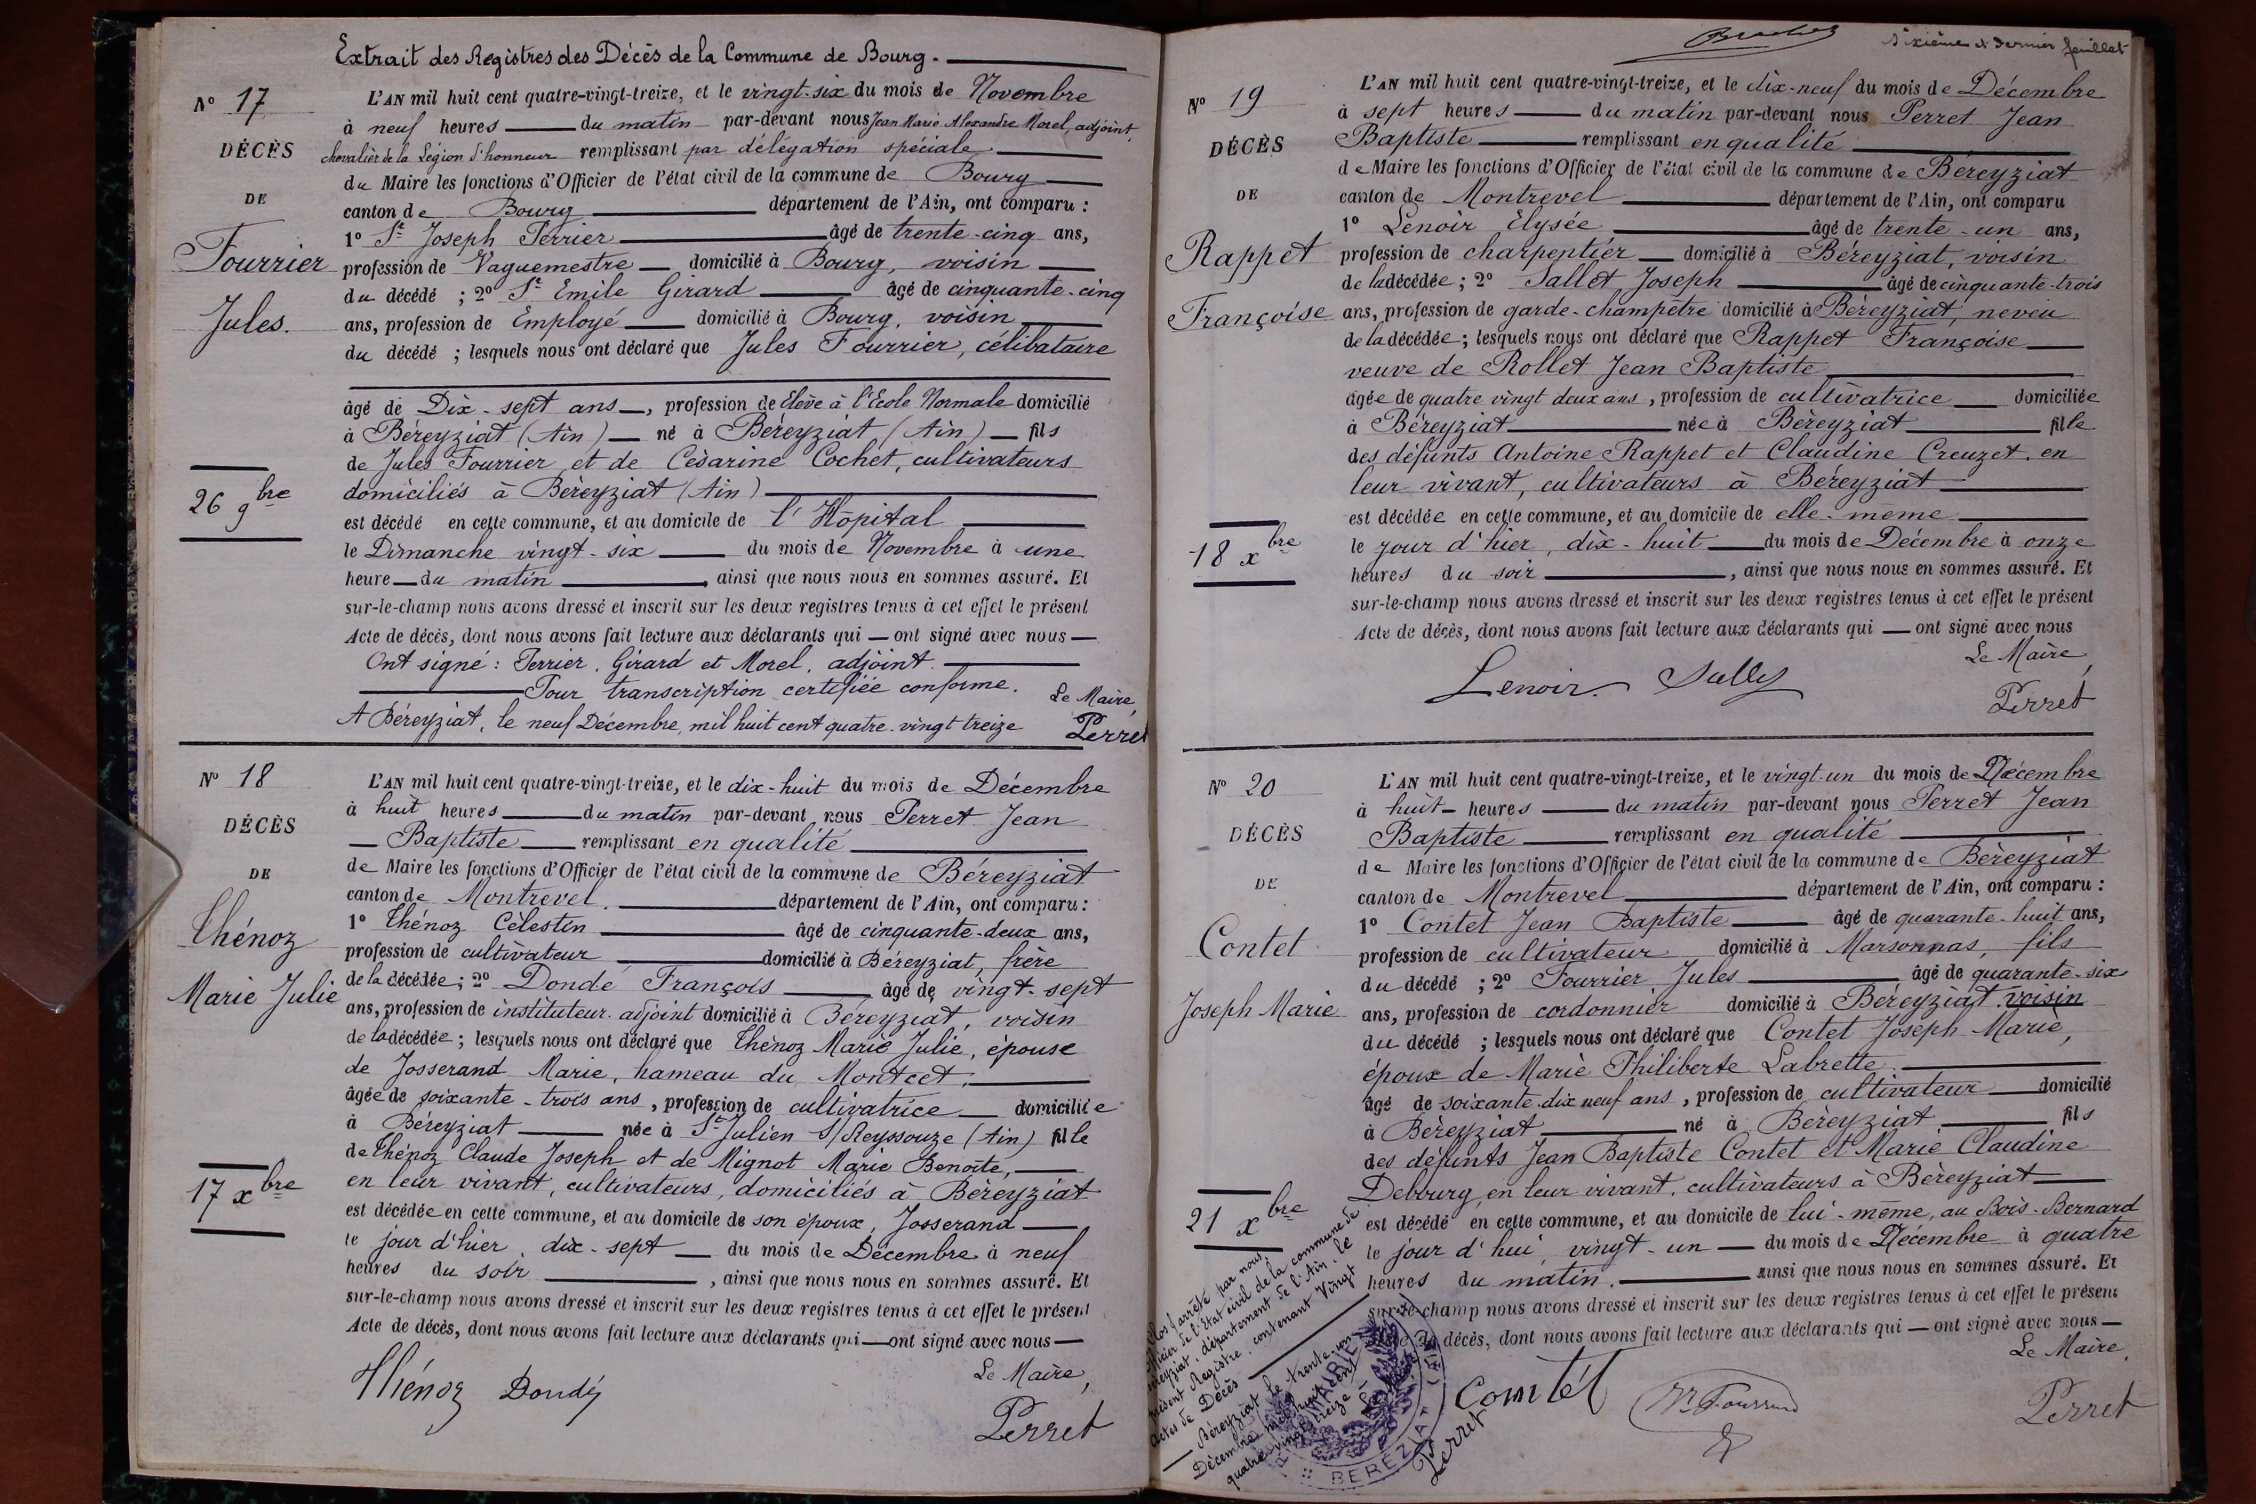 Extrait des Registres des Décès de la Commune de Bourg.
N° 17
DÉCÈS
DE
Fourrier
Jules.
26 9bre
L'AN mil huit cent quatre-vingt-treize, et le vingt-six du mois de Novembre
à neuf heures du matin par-devant nous Jean Marie Alexandre Morel, adjoint,
chevalier de la Légion d'honneur remplissant par délégation spéciale
du Maire les fonctions d'Officier de l'état civil de la commune de Bourg
canton de Bourg département de l'Ain, ont comparu :
1° Sr Joseph Perrier âgé de trente-cinq ans,
profession de Vaguemestre domicilié à Bourg, voisin
du décédé ; 2° Sr Emile Girard âgé de cinquante-cinq
ans, profession de Employé domicilié à Bourg, voisin
du décédé ; lesquels nous ont déclaré que Jules Fourrier, célibataire
âgé de Dix-sept ans, profession de Elève à l'Ecole Normale domicilié
à Béreyziat (Ain) né à Béreyziat (Ain) fils
de Jules Fourrier et de Césarine Cochet, cultivateurs
domiciliés à Béreyziat (Ain)
est décédé en cette commune, et au domicile de l'Hôpital
le Dimanche vingt-six du mois de Novembre à une
heure du matin, ainsi que nous nous en sommes assuré. Et
sur-le-champ nous avons dressé et inscrit sur les deux registres tenus à cet effet le présent
Acte de décès, dont nous avons fait lecture aux déclarants qui ont signé avec nous
Ont signé : Perrier, Girard et Morel, adjoint.
Pour transcription certifiée conforme.
A Béreyziat, le neuf Décembre, mil huit cent quatre-vingt treize
Le Maire,
Perret
N° 18
DÉCÈS
DE
Thénoz
Marie Julie
17 xbre
L'AN mil huit cent quatre-vingt-treize, et le dix-huit du mois de Décembre
à huit heures du matin par-devant nous Perret Jean
Baptiste remplissant en qualité
de Maire les fonctions d'Officier de l'état civil de la commune de Béreyziat
canton de Montrevel. département de l'Ain, ont comparu :
1° Thénoz Célestin âgé de cinquante-deux ans,
profession de cultivateur domicilié à Béreyziat, frère
de la décédée ; 2° Dondé François âgé de vingt-sept
ans, profession de instituteur-adjoint domicilié à Béreyziat, voisin
de la décédée ; lesquels nous ont déclaré que Thénoz Marie Julie, épouse
de Josserand Marie, hameau du Montcet,
âgée de soixante-trois ans, profession de cultivatrice domiciliée
à Béreyziat née à St Julien S/Reyssouze (Ain) fille
de Thénoz Claude Joseph et de Mignot Marie Benoîte,
en leur vivant, cultivateurs, domiciliés à Béreyziat
est décédée en cette commune, et au domicile de son époux, Josserand
le jour d'hier, dix-sept du mois de Décembre à neuf
heures du soir, ainsi que nous nous en sommes assuré. Et
sur-le-champ nous avons dressé et inscrit sur les deux registres tenus à cet effet le présent
Acte de décès, dont nous avons fait lecture aux déclarants qui ont signé avec nous
Le Maire,
Thénoz Dondé
Perret
Sixième et dernier feuillet
N° 19
DÉCÈS
DE
Rappet
Françoise
18 xbre
L'AN mil huit cent quatre-vingt-treize, et le dix-neuf du mois de Décembre
à sept heures du matin par-devant nous Perret Jean
Baptiste remplissant en qualité
de Maire les fonctions d'Officier de l'état civil de la commune de Béreyziat
canton de Montrevel département de l'Ain, ont comparu
1° Lenoir Elysée âgé de trente-un ans,
profession de charpentier domicilié à Béreyziat, voisin
de la décédée ; 2° Sallet Joseph âgé de cinquante-trois
ans, profession de garde-champêtre domicilié à Béreyziat, neveu
de la décédée ; lesquels nous ont déclaré que Rappet Françoise
veuve de Rollet Jean Baptiste
âgée de quatre vingt deux ans, profession de cultivatrice domiciliée
à Béreyziat née à Béreyziat fille
des défunts Antoine Rappet et Claudine Creuzet, en
leur vivant, cultivateurs à Béreyziat
est décédée en cette commune, et au domicile de elle-même
le jour d'hier, dix-huit du mois de Décembre à onze
heures du soir, ainsi que nous nous en sommes assuré. Et
sur-le-champ nous avons dressé et inscrit sur les deux registres tenus à cet effet le présent
Acte de décès, dont nous avons fait lecture aux déclarants qui ont signé avec nous
Le Maire,
Lenoir
Perret
N° 20
DÉCÈS
DE
Contet
Joseph Marie
21 xbre
L'AN mil huit cent quatre-vingt-treize, et le vingt-un du mois de Décembre
à huit heures du matin par-devant nous Perret Jean
Baptiste remplissant en qualité
de Maire les fonctions d'Officier de l'état civil de la commune de Béreyziat
canton de Montrevel département de l'Ain, ont comparu :
1° Contet Jean Baptiste âgé de quarante-huit ans,
profession de cultivateur domicilié à Marsonnas, fils
du décédé ; 2° Fourrier Jules âgé de quarante-six
ans, profession de cordonnier domicilié à Béreyziat voisin
du décédé ; lesquels nous ont déclaré que Contet Joseph Marie,
époux de Marie Philiberte Labrette.
âgé de soixante-dix neuf ans, profession de cultivateur domicilié
à Béreyziat né à Béreyziat fils
des défunts Jean Baptiste Contet et Marie Claudine
Debourg, en leur vivant, cultivateurs à Béreyziat
est décédé en cette commune, et au domicile de lui-même, au Bois-Bernard
le jour d'hui vingt-un du mois de Décembre à quatre
heures du matin, ainsi que nous nous en sommes assuré. Et
sur-le-champ nous avons dressé et inscrit sur les deux registres tenus à cet effet le présent
Acte de décès, dont nous avons fait lecture aux déclarants qui ont signé avec nous
Le Maire,
Comtet
Perret
Clos & arrêté par nous,
officier de l'Etat civil de la commune de
Béreyziat, département de l'Ain, le
présent Registre, contenant Vingt
actes de Décès
Béreyziat le trente-un
Décembre mil huit cent
quatre-vingt treize
Perret
MAIRIE
BEREZIAT